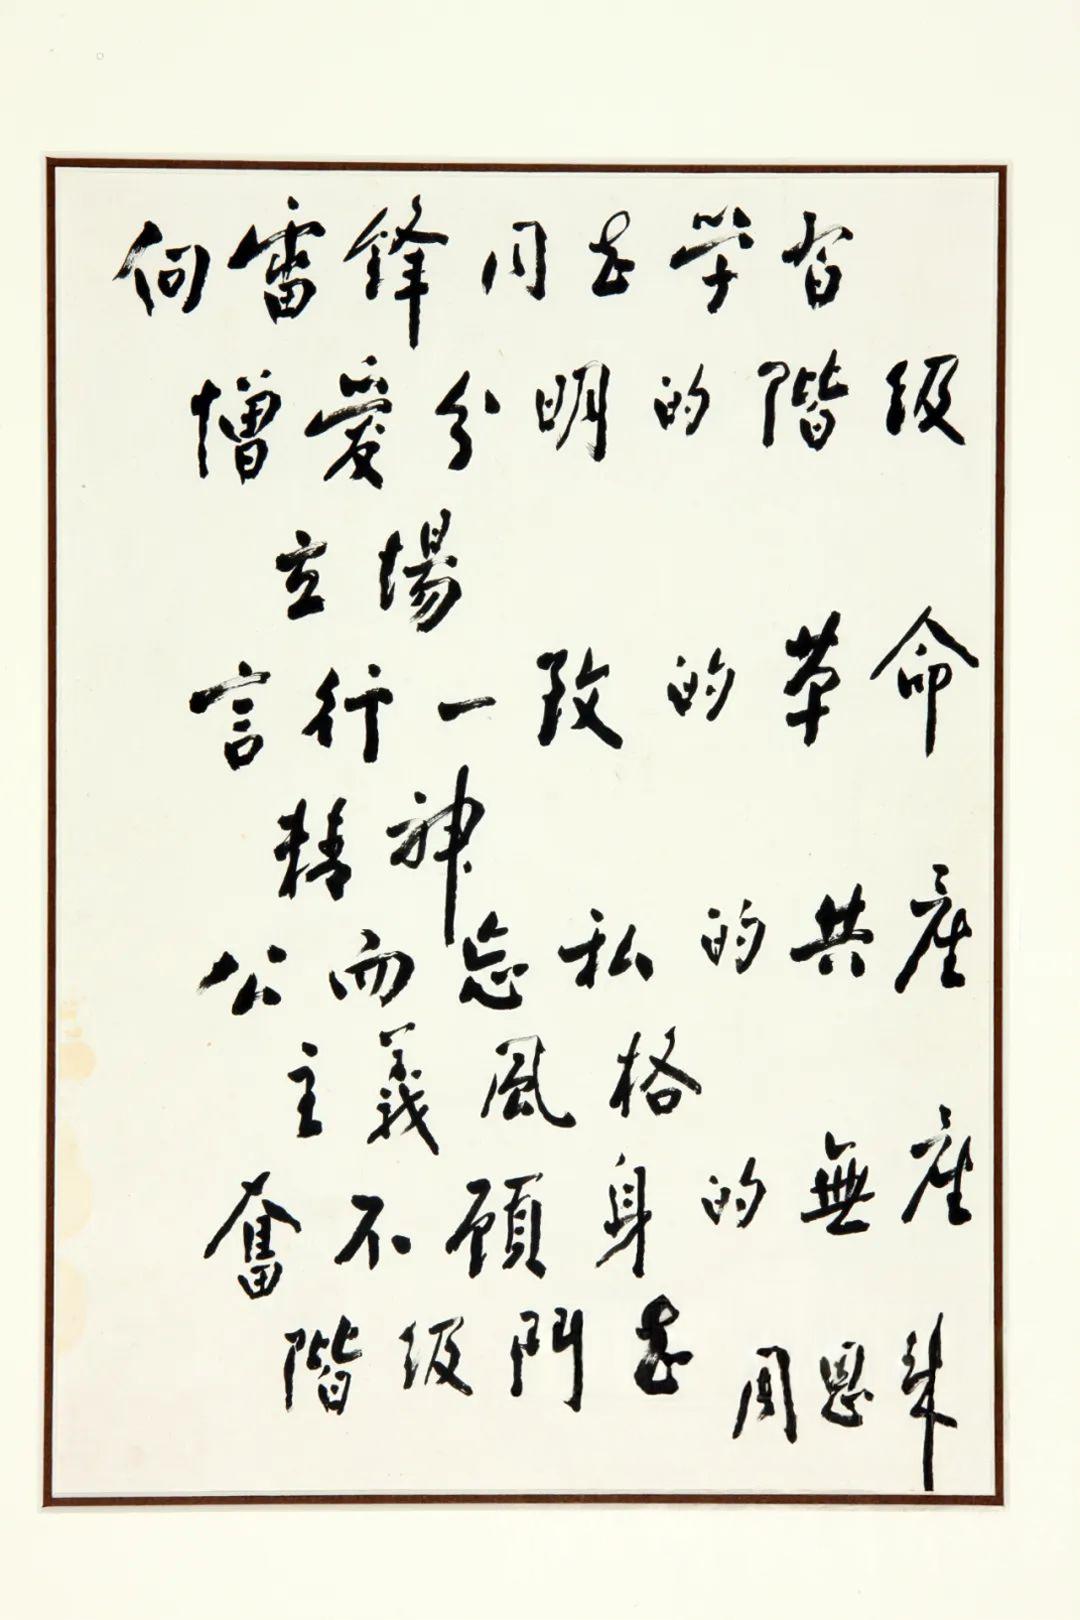 向雷鋒同志学習
憎爱分明的階级
立場
言行一致的革命
精神
公而忘私的共産
主義風格
奮不顧身的無産
階级鬥志
周恩来